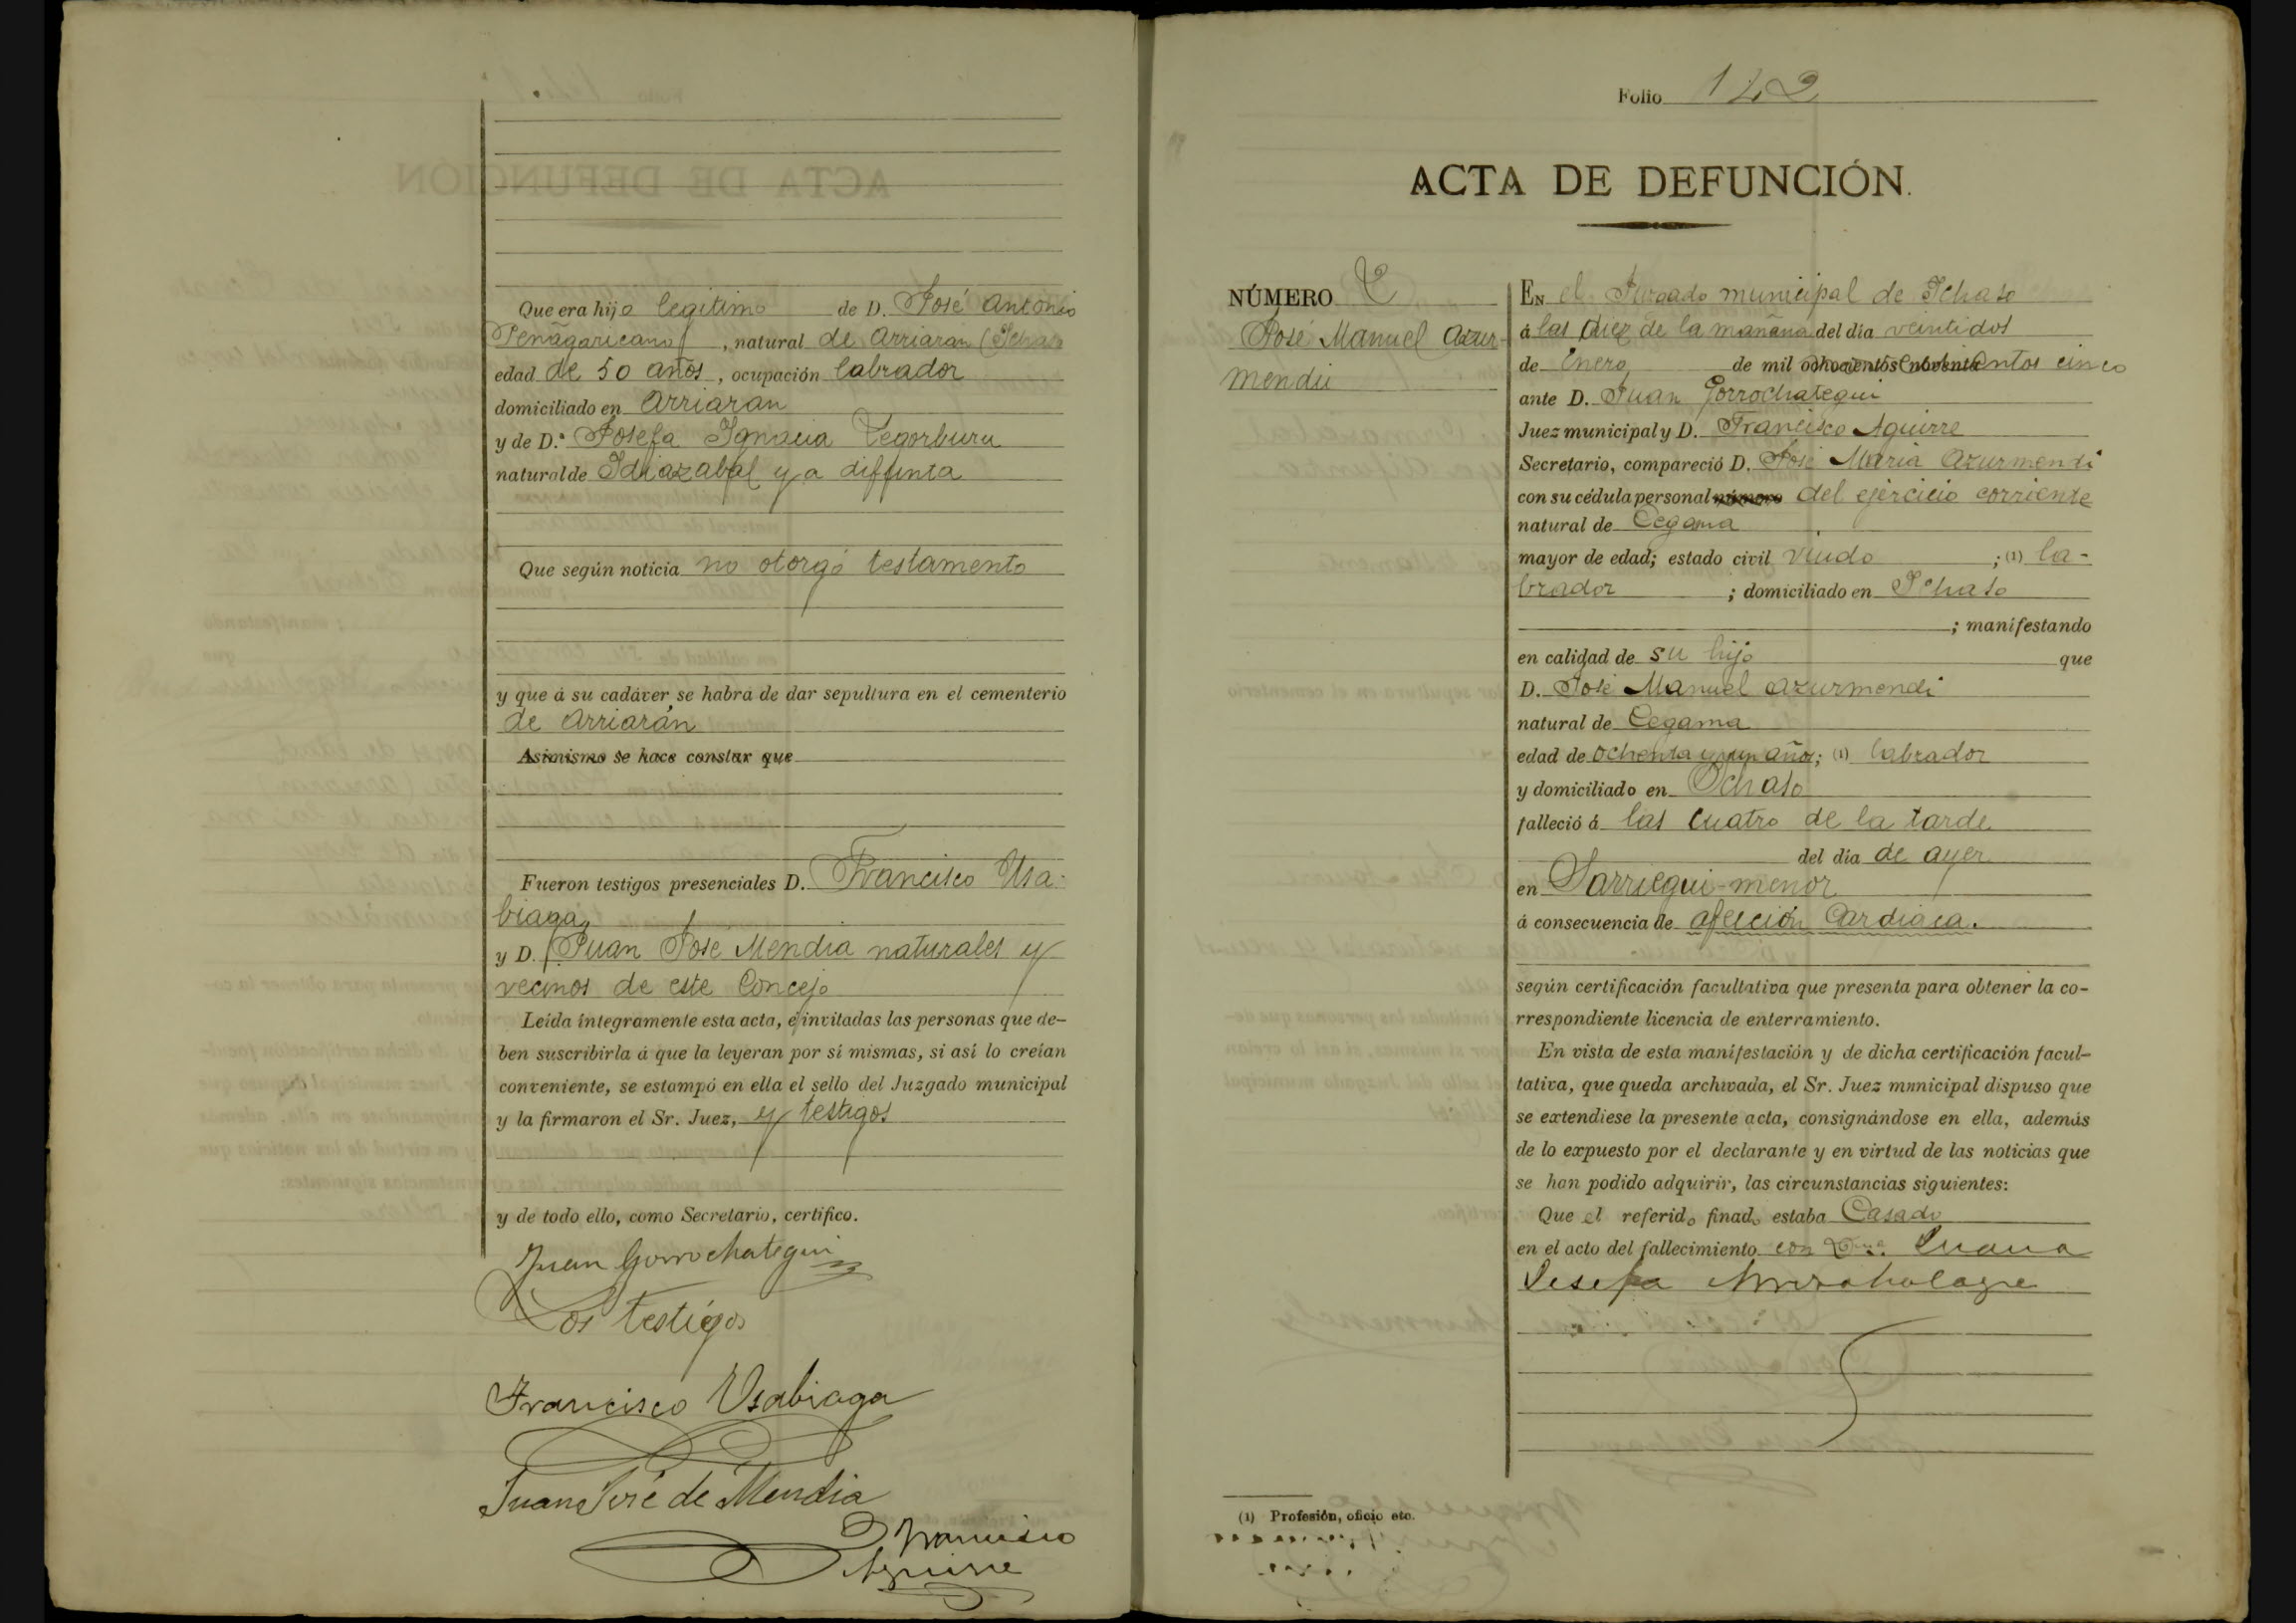 Que era hijo legitimo de D. José Antonio
Peñagaricano, natural de Arriarán (Ichaso
edad de 50 años, ocupación labrador
domiciliado en Arriaran
y de D.ª Josefa Ignacia Tegorburu
natural de Idiazabal ya diffunta
Que según noticia no otorgó testamento
y que á su cadáver se habrá de dar sepultura en el cementerio
de Arriarán
Asimismo se hace constar que
Fueron testigos presenciales D. Francisco Usa-
biaga
y D. Juan José Mendia naturales y
vecinos de este Concejo
Leída íntegramente esta acta, é invitadas las personas que de-
ben suscribirla á que la leyeran por sí mismas, si así lo creían
conveniente, se estampó en ella el sello del Juzgado municipal
y la firmaron el Sr. Juez, y testigos
y de todo ello, como Secretario, certifico.
Juan Gorrochategui
Los testigos
Francisco Usabiaga
Juan José de Mendia
Francisco
Aguirre
Folio 142
ACTA DE DEFUNCIÓN.
NÚMERO
José Manuel Azur-
mendi
EN el Juzgado municipal de Ichaso
á las diez de la mañana del día veintidos
de Enero de mil novecientos cinco
ante D. Juan Gorrochategui
Juez municipal y D. Francisco Aguirre
Secretario, compareció D. José Maria Azurmendi
con su cédula personal número del ejercicio corriente
natural de Cegama
mayor de edad; estado civil viudo ; (1) la-
brador ; domiciliado en Ichaso
; manifestando
en calidad de su hijo que
D. José Manuel Azurmendi
natural de Cegama
edad de ochenta y un años; (1) labrador
y domiciliado en Ichaso
falleció á las cuatro de la tarde
del día de ayer
en Sarriegui-menor
á consecuencia de afección Cardiaca.
según certificación facultativa que presenta para obtener la co-
rrespondiente licencia de enterramiento.
En vista de esta manifestación y de dicha certificación facul-
tativa, que queda archivada, el Sr. Juez municipal dispuso que
se extendiese la presente acta, consignándose en ella, además
de lo expuesto por el declarante y en virtud de las noticias que
se han podido adquirir, las circunstancias siguientes:
Que el referido finado estaba Casado
en el acto del fallecimiento con Dña. Juana
Josefa
(1) Profesión, oficio etc.